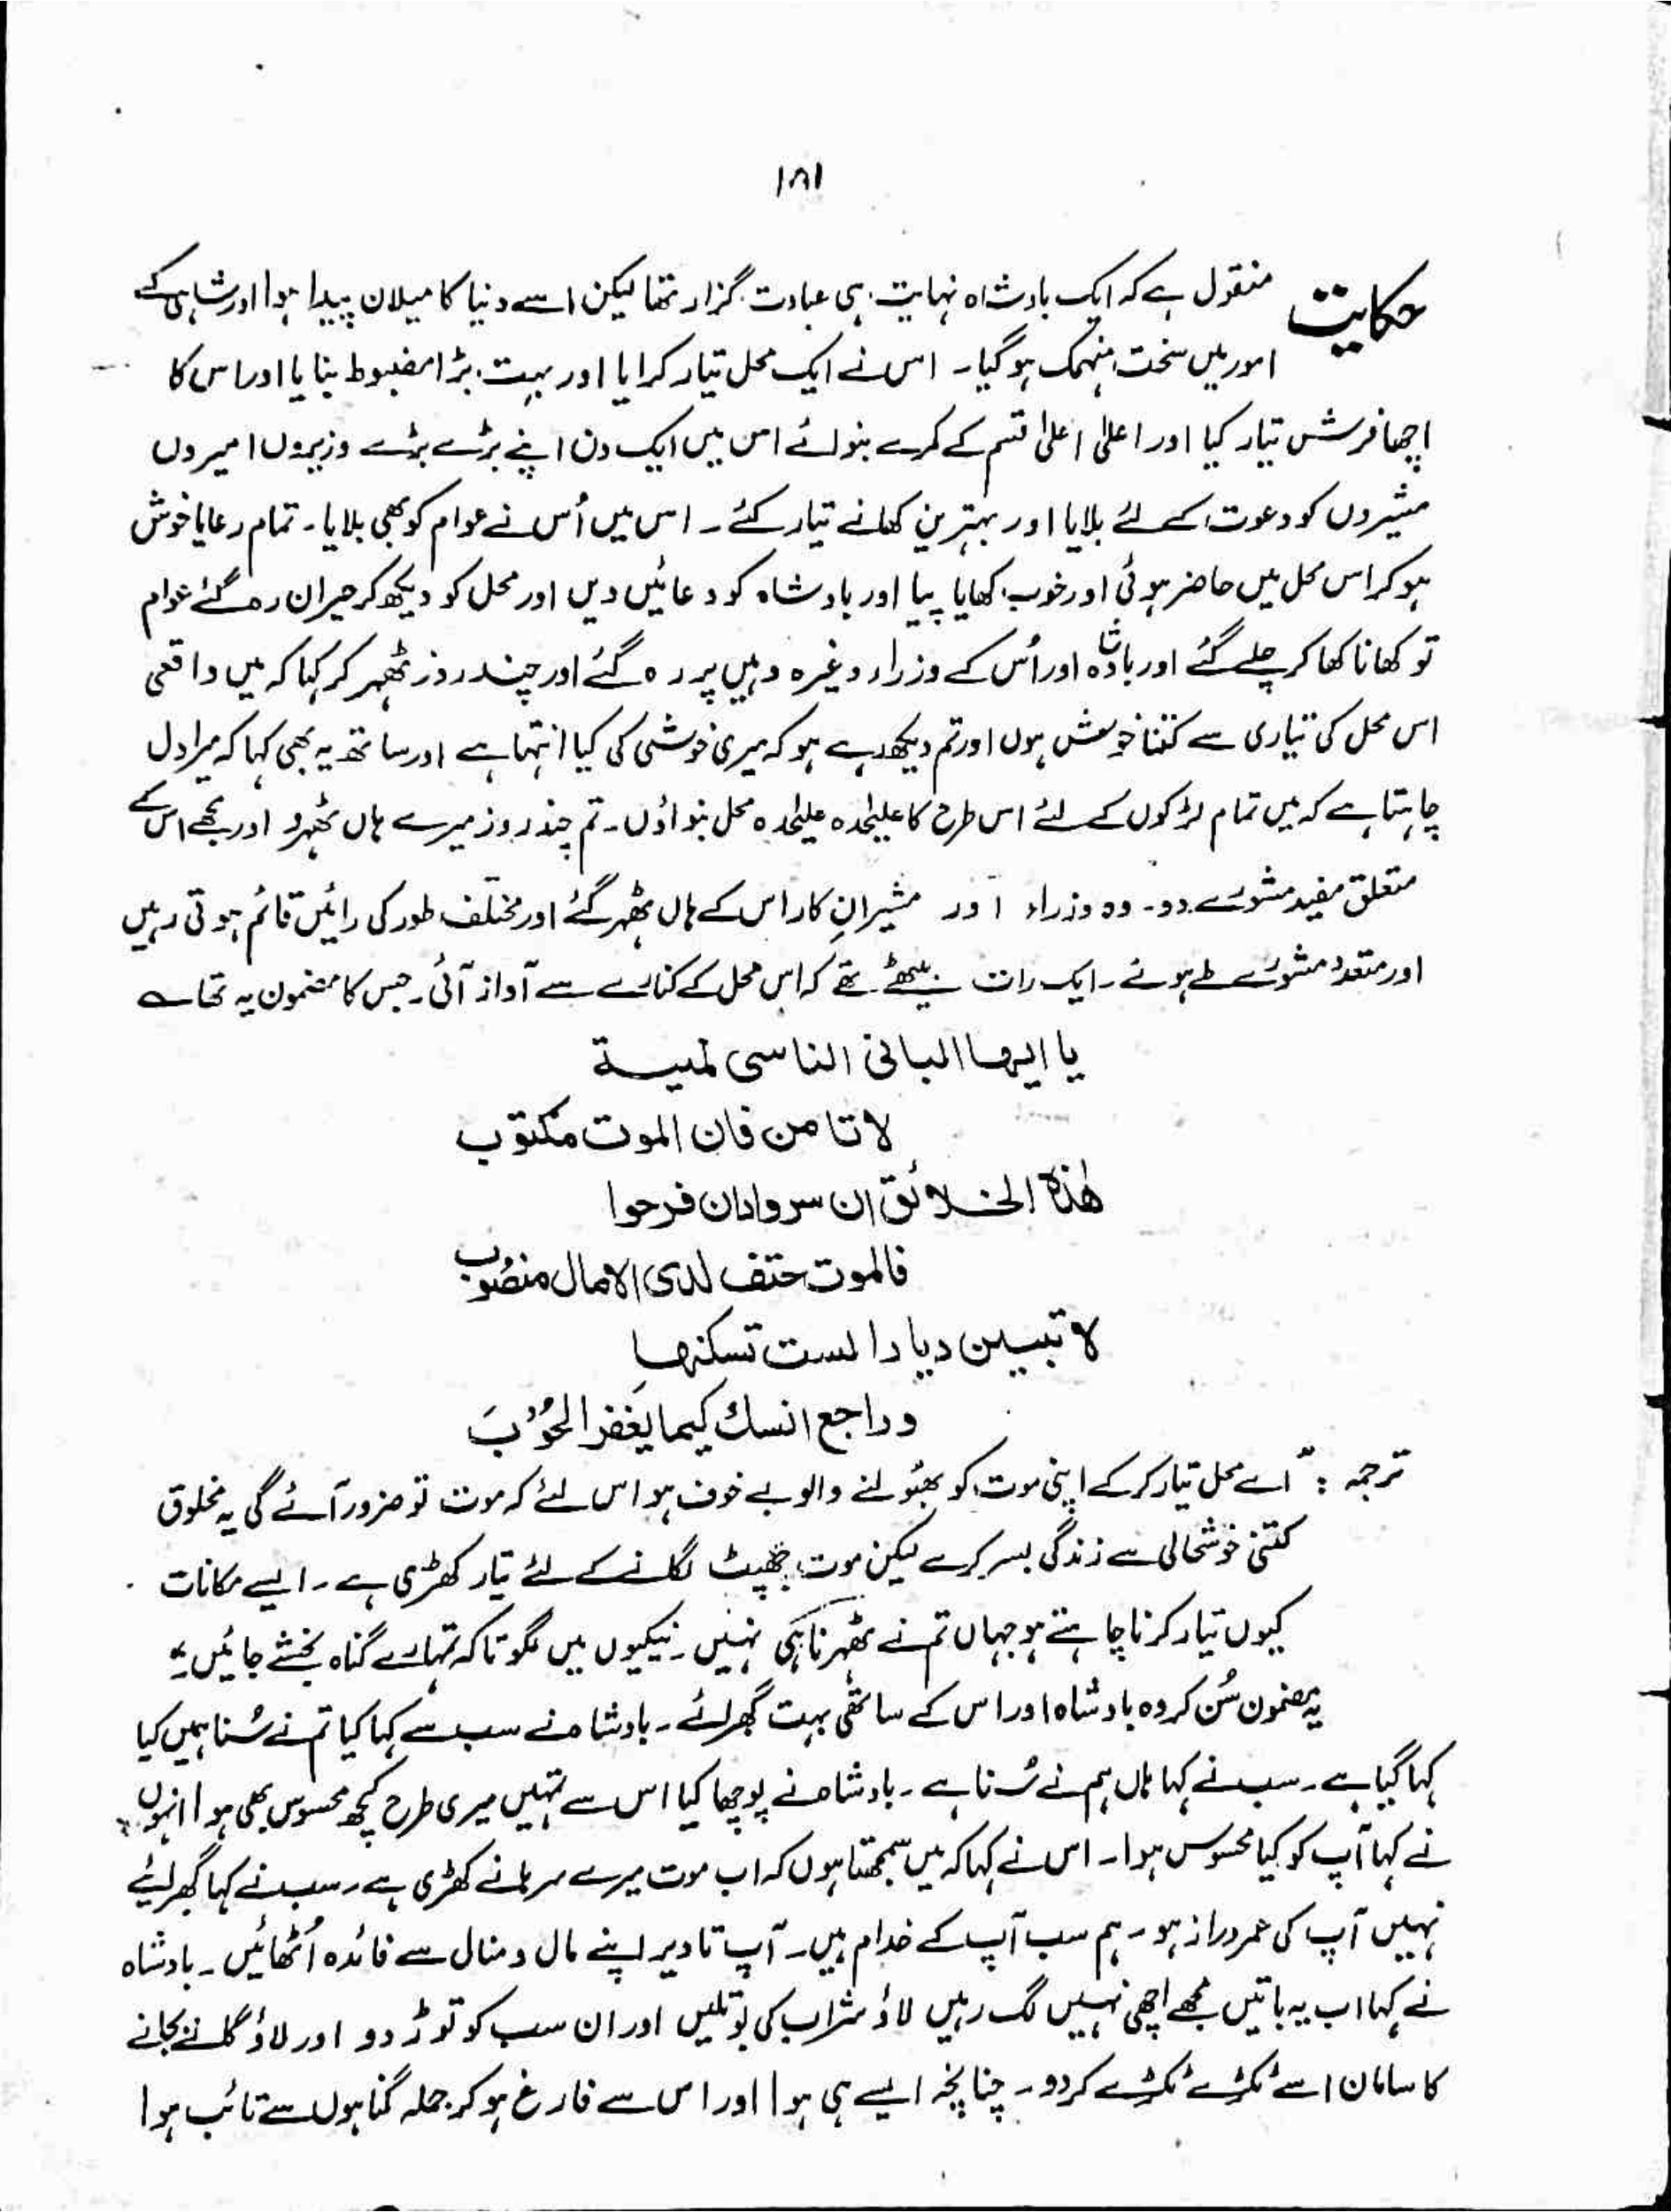 ۱۸۱
حکایت منقول ہے کہ ایک بادشاہ نہایت ہی عبادت گزار تھا لیکن اسے دنیا کا میلان پیدا ہوا اور شاہی کے
امور میں سخت منہمک ہو گیا۔ اس نے ایک محل تیار کرایا اور بہت بڑا مضبوط بنایا اور اس کا
اچھا فرش تیار کیا اور اعلیٰ اعلیٰ قسم کے کمرے بنوائے اس میں ایک دن اپنے بڑے بڑے وزیروں امیروں
مشیروں کو دعوت کے لئے بلایا اور بہترین کھانے تیار کئے۔ اس میں اُس نے عوام کو بھی بلایا۔ تمام رعایا خوش
ہو کر اس محل میں حاضر ہوئی اور خوب کھایا پیا اور بادشاہ کو دعائیں دیں اور محل کو دیکھ کر حیران رہ گئے عوام
تو کھانا کھا کر چلے گئے اور بادشاہ اور اُس کے وزراء وغیرہ وہیں پر رہ گئے اور چند روز ٹھہر کر کہا کہ میں واقعی
اس محل کی تیاری سے کتنا خوش ہوں اور تم دیکھ رہے ہو کہ میری خوشی کی کیا انتہا ہے اور ساتھ یہ بھی کہا کہ میرا دل
چاہتا ہے کہ میں تمام لڑکوں کے لئے اس طرح کا علیٰحدہ علیٰحدہ محل بنواؤں۔ تم چند روز میرے ہاں ٹھہرو اور مجھے اس کے
متعلق مفید مشورے دو۔ وہ وزراء اور مشیرانِ کار اس کے ہاں ٹھہر گئے اور مختلف طور کی رائیں قائم ہوتی رہیں
اور متعدد مشورے طے ہوئے۔ ایک رات بیٹھے تھے کہ اس محل کے کنارے سے آواز آئی۔ جس کا مضمون یہ تھا ؎
یا ایھا البانی الناسی لمیسة
لا تامن فان الموت مکتوب
ھٰذہ الخلائق ان سروا وان فرحوا
فالموت حتف لدی الامال منصُوب
لا تبین دیارا لست تسکنھا
وراجع انسك کیما یغفر الحُوْبَ
ترجمہ : ”اے محل تیار کر کے اپنی موت کو بھُولنے والو بے خوف ہو اس لئے کہ موت تو ضرور آئے گی یہ مخلوق
کتنی خوشحالی سے زندگی بسر کرے لیکن موت جھپٹ لگانے کے لئے تیار کھڑی ہے۔ ایسے مکانات
کیوں تیار کرنا چاہتے ہو جہاں تم نے ٹھہرنا ہی نہیں۔ نیکیوں میں لگو تاکہ تمہارے گناہ بخشے جائیں“
یہ مضمون سُن کر وہ بادشاہ اور اس کے ساتھی بہت گھبرائے۔ بادشاہ نے سب سے کہا کیا تم نے سُنا ہمیں کیا
کہا گیا ہے۔ سب نے کہا ہاں ہم نے سُنا ہے۔ بادشاہ نے پوچھا کیا اس سے تمہیں میری طرح کچھ محسوس بھی ہوا انہوں
نے کہا آپ کو کیا محسوس ہوا۔ اس نے کہا کہ میں سمجھتا ہوں کہ اب موت میرے سرہانے کھڑی ہے۔ سب نے کہا گھبرائیے
نہیں آپ کی عمر دراز ہو۔ ہم سب آپ کے خدام ہیں۔ آپ تا دیر اپنے مال و منال سے فائدہ اُٹھائیں۔ بادشاہ
نے کہا اب یہ باتیں مجھے اچھی نہیں لگ رہیں لاؤ شراب کی بوتلیں اور ان سب کو توڑ دو اور لاؤ گانے بجانے
کا سامان اسے ٹکڑے ٹکڑے کر دو۔ چنانچہ ایسے ہی ہوا اور اس سے فارغ ہو کر جملہ گناہوں سے تائب ہوا